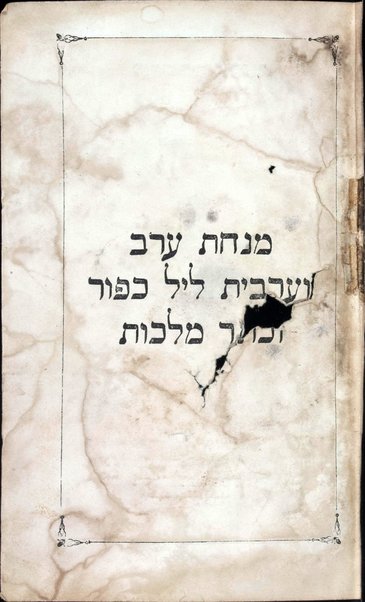 מנחת ערב
וערבית ליל כפור
וכתר מלכות